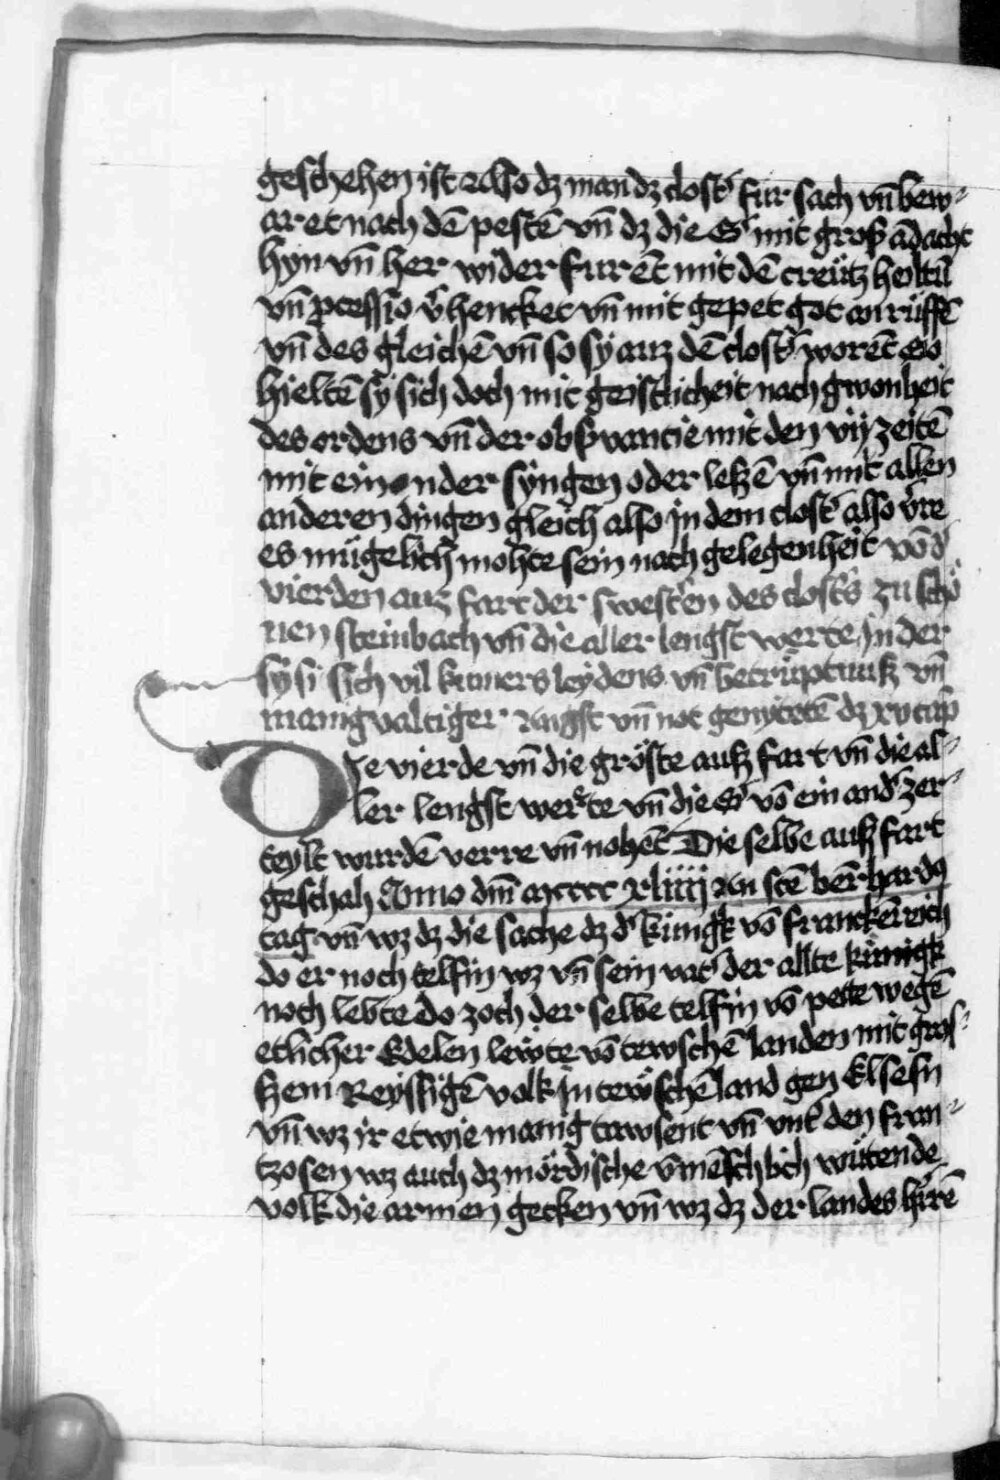 geschehen ist Also dz man dz clost' fur sach vn̄ bew-
aret nach dē pestē vn̄ dz die S' mit groß ādacht
hyn vn̄ her wider furēt mit dē creütz heiltū
vn̄ ꝓcessio v'hencket vn̄ mit gepet got an rüffē
vn̄ des gleichē vn̄ so sy auz dē clost' worēt So
hieltē sy sich doch mit geistlicheit nach gwonheit
des ordens vn̄ der obs'vancie mit den vij zeitē
mit einander syngen oder leßē vn̄ mit allen
anderen dingen gleich also jn dem clost' also v're
es mügelich mohte sein nach gelegenheit vō d'
vierden auz fart der swest'en des clost's zu schö
nen steinbach vn̄ die aller lengst werte Jn der
sy si sich vil kumers leydens vn̄ betrüptnuß vn̄
manigvaltiger Angst vn̄ not genytetē dz xv cap
DJe vierde vn̄ die gröste auß fart vn̄ die al-
ler lengst werte vn̄ die S' vō ein and' zer-
teylt wurdē verre vn̄ nohēt Die selbe auß fart
geschah Anno dm̄ mcccc xliiij An sctē bērhardꝯ
tag vn̄ wz dz die sache dz d' künigk vō franckēreich
do er noch telfin wz vn̄ sein vat' der allte künigk
noch lebte do zoch der selbe telfin vō pette wegē
etlicher Edelen lewte vō tewschē landen mit gros-
ßem Reyssigē volk Jn tewschē land gen Elsesn
vn̄ wz ir etwie manig tawsent vn̄ vnt' den fran-
tzosen wz auch dz mördische v̄mēschlich wütende
volk die armen gecken vn̄ wz dz der landes h'rē